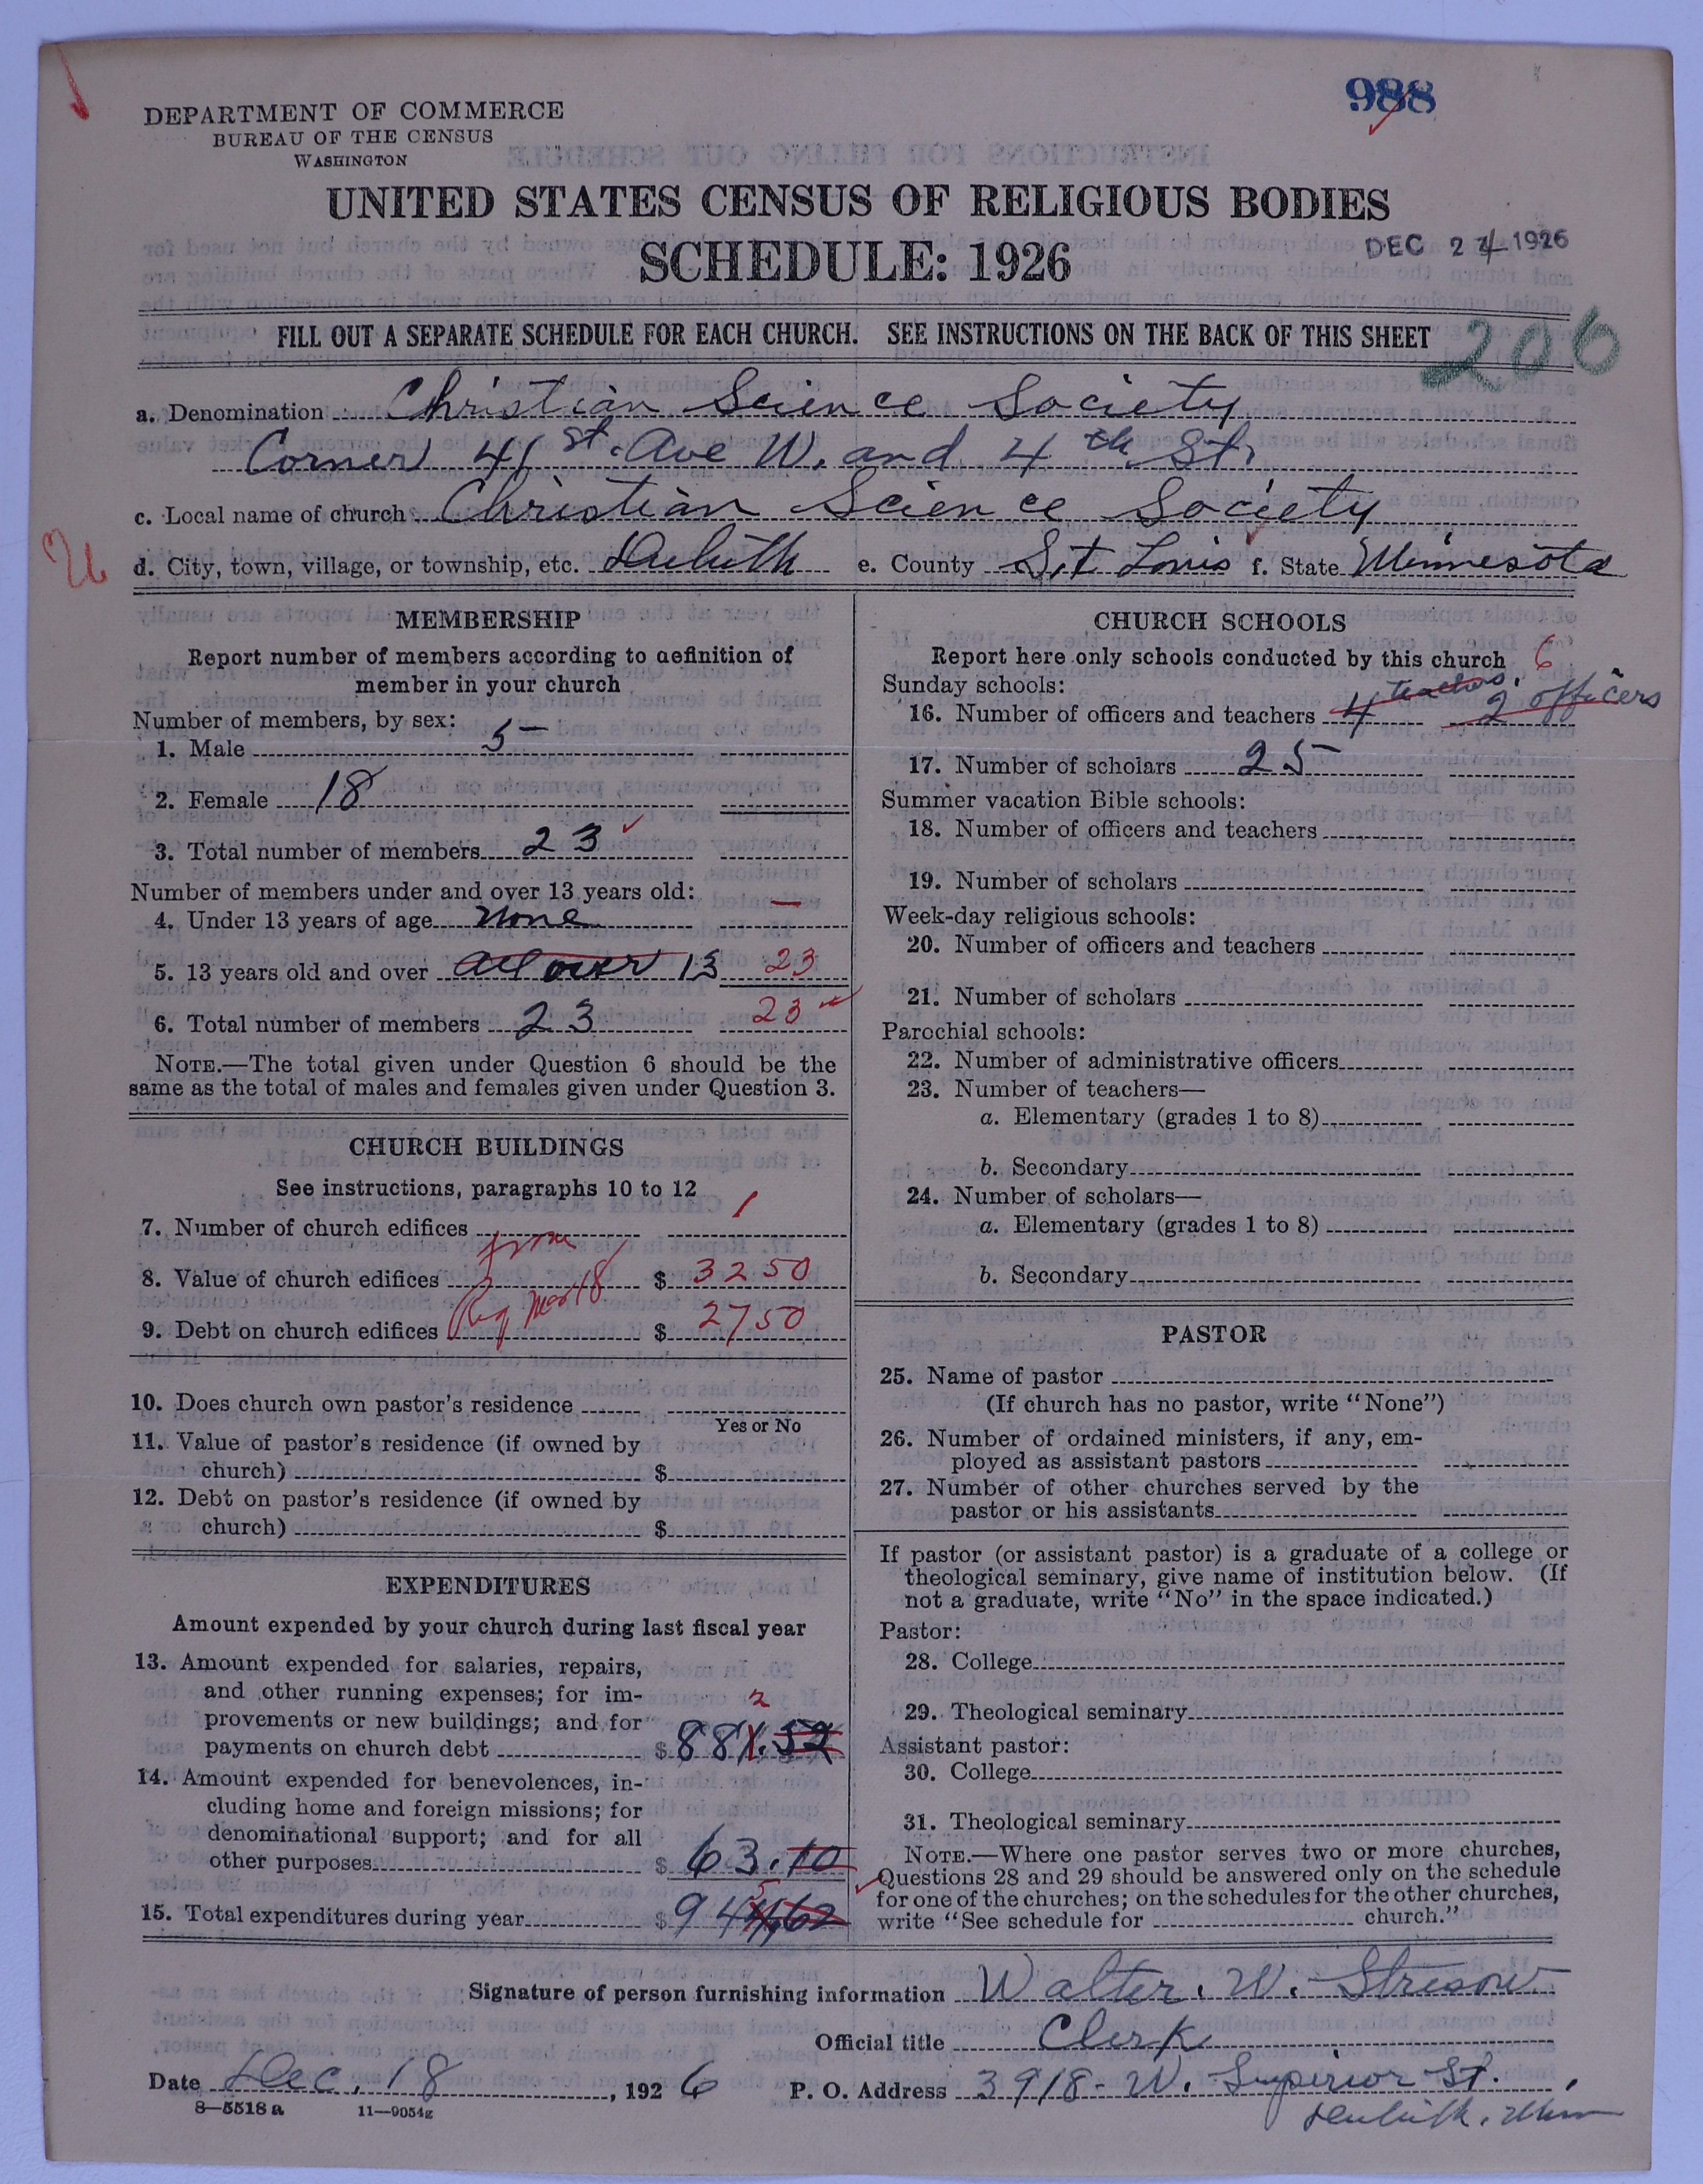 988
DEPARTMENT OF COMMERCE
BUREAU OF THE CENSUS
WASHINGTON
UNITED STATES CENSUS OF RELIGIOUS BODIES
SCHEDULE: 1926
DEC 24 1926
FILL OUT A SEPARATE SCHEDULE FOR EACH CHURCH. SEE INSTRUCTIONS ON THE BACK OF THIS SHEET
206
a. Denomination Christian Science Society
Corner 41st Ave W. and 4th St.
c. Local name of church Christian Science Society
d. City, town, village, or township, etc. Duluth e. County St Louis f. State Minnesota
MEMBERSHIP
Report number of members according to definition of
member in your church
Number of members, by sex:
1. Male 5
2. Female 18
3. Total number of members 23
Number of members under and over 13 years old:
4. Under 13 years of age none —
5. 13 years old and over all over 13 23
6. Total number of members 23 23
NOTE.—The total given under Question 6 should be the
same as the total of males and females given under Question 3.
CHURCH BUILDINGS
See instructions, paragraphs 10 to 12
7. Number of church edifices 1
8. Value of church edifices $ 3250
9. Debt on church edifices $ 2750
10. Does church own pastor's residence
Yes or No
11. Value of pastor's residence (if owned by
church) $
12. Debt on pastor's residence (if owned by
church) $
EXPENDITURES
Amount expended by your church during last fiscal year
13. Amount expended for salaries, repairs,
and other running expenses; for im-
2
provements or new buildings; and for
payments on church debt $ 881.52
14. Amount expended for benevolences, in-
cluding home and foreign missions; for
denominational support; and for all
other purposes $ 63.10
5
15. Total expenditures during year $ 944.62
CHURCH SCHOOLS
Report here only schools conducted by this church 6
Sunday schools:
16. Number of officers and teachers 4 teachers. 2 officers
17. Number of scholars 25
Summer vacation Bible schools:
18. Number of officers and teachers
19. Number of scholars
Week-day religious schools:
20. Number of officers and teachers
21. Number of scholars
Parochial schools:
22. Number of administrative officers
23. Number of teachers—
a. Elementary (grades 1 to 8)
b. Secondary
24. Number of scholars—
a. Elementary (grades 1 to 8)
b. Secondary
PASTOR
25. Name of pastor
(If church has no pastor, write "None")
26. Number of ordained ministers, if any, em-
ployed as assistant pastors
27. Number of other churches served by the
pastor or his assistants
If pastor (or assistant pastor) is a graduate of a college or
theological seminary, give name of institution below. (If
not a graduate, write "No" in the space indicated.)
Pastor:
28. College
29. Theological seminary
Assistant pastor:
30. College
31. Theological seminary
NOTE.—Where one pastor serves two or more churches,
Questions 28 and 29 should be answered only on the schedule
for one of the churches; on the schedules for the other churches,
write "See schedule for church."
Signature of person furnishing information Walter. W. Stresow
Official title Clerk
Date Dec. 18, 1926 P. O. Address 3918 - W. Superior St.,
Duluth, Minn
8—5518 a 11—9054g